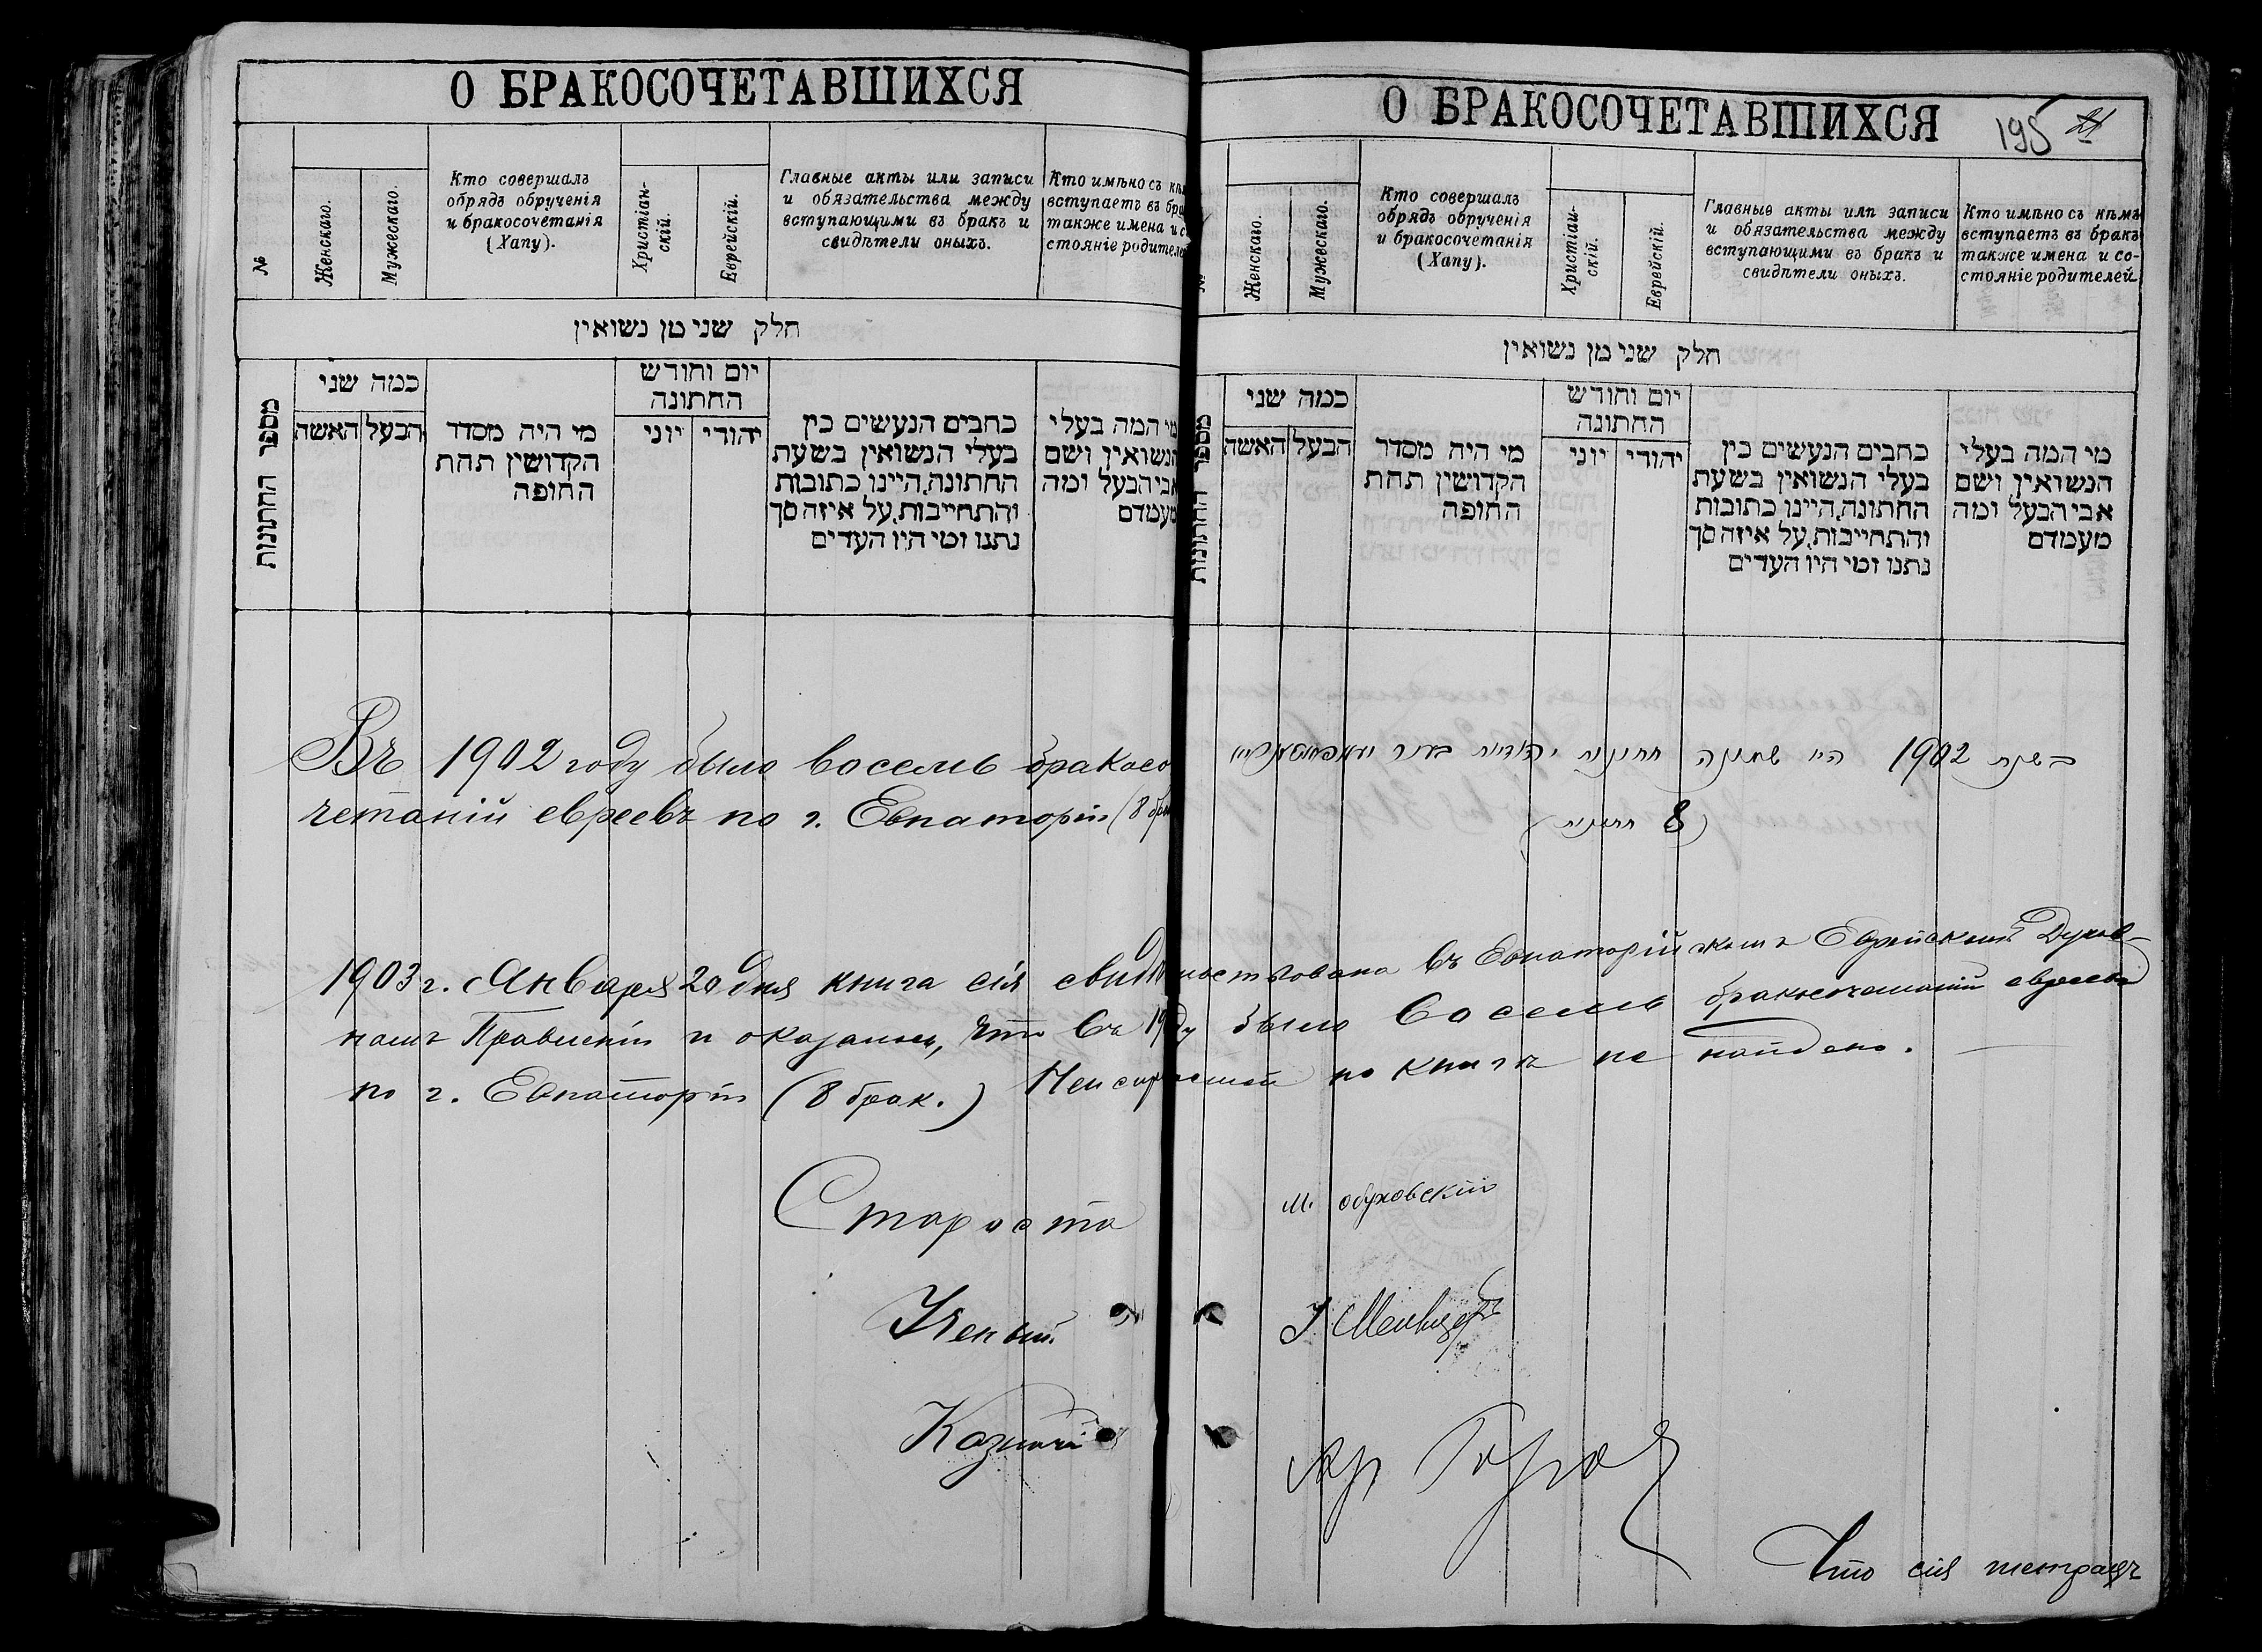 О БРАКОСОЧЕТАВШИХСЯ
№
Женскаго.
Мужескаго.
Кто совершалъ
обрядъ обрученія
и бракосочетанія
(Хапу).
Христіан-
скій.
Еврейскій.
Главные акты или записи
и обязательства между
вступающими въ бракъ и
свидѣтели оныхъ.
Кто имѣно съ
вступаетъ въ
также имена и
стояніе
חלק שני מן נשואין
מספר החתונות
כמה שני
האשה
הבעל
מי היה מסדר
הקדושין תחת
החופה
יום וחודש
החתונה
יוני
יהודי
כתבים הנעשים בין
בעלי הנשואין בשעת
החתונה, היינו כתובות
והתחייבות, על איזה סך
נתנו ומי היו העדים
מי המה בעלי
הנשואין ושם
אבי הבעל ומה
מעמדם
Въ 1902 году было восемь бракосо
четаній евреевъ по г. Евпаторіи (8
О БРАКОСОЧЕТАВШИХСЯ
195
21
Женскаго.
Мужескаго.
Кто совершалъ
обрядъ обрученія
и бракосочетанія
(Хапу).
Христіан-
скій.
Еврейскій.
Главные акты или записи
и обязательства между
вступающими въ бракъ и
свидѣтели оныхъ.
Кто имѣно съ кѣмъ
вступаетъ въ бракъ
также имена и со-
стояніе родителей
חלק שני מן נשואין
כמה שני
האשה
הבעל
מי היה מסדר
הקדושין תחת
החופה
יום וחודש
החתונה
יוני
יהודי
כתבים הנעשים בין
בעלי הנשואין בשעת
החתונה, היינו כתובות
והתחייבות, על איזה סך
נתנו ומי היו העדים
מי המה בעלי
הנשואין ושם
אבי הבעל ומה
מעמדם
בשנת 1902 היו שמונה חתונות יהודיות בעיר
(8 חתונות)
1903 г. Января 20 дня книга сія свидѣтельствована въ Евпаторійскомъ Еврейскомъ Духов-
номъ Правленіи и оказалось, что въ году было восемь бракосочетаній евреевъ
по г. Евпаторіи (8 брак.) Неисправностей по книгѣ не найдено.
Староста М. Обуховскій
Ученый
Казначей
Что сія тетрадь